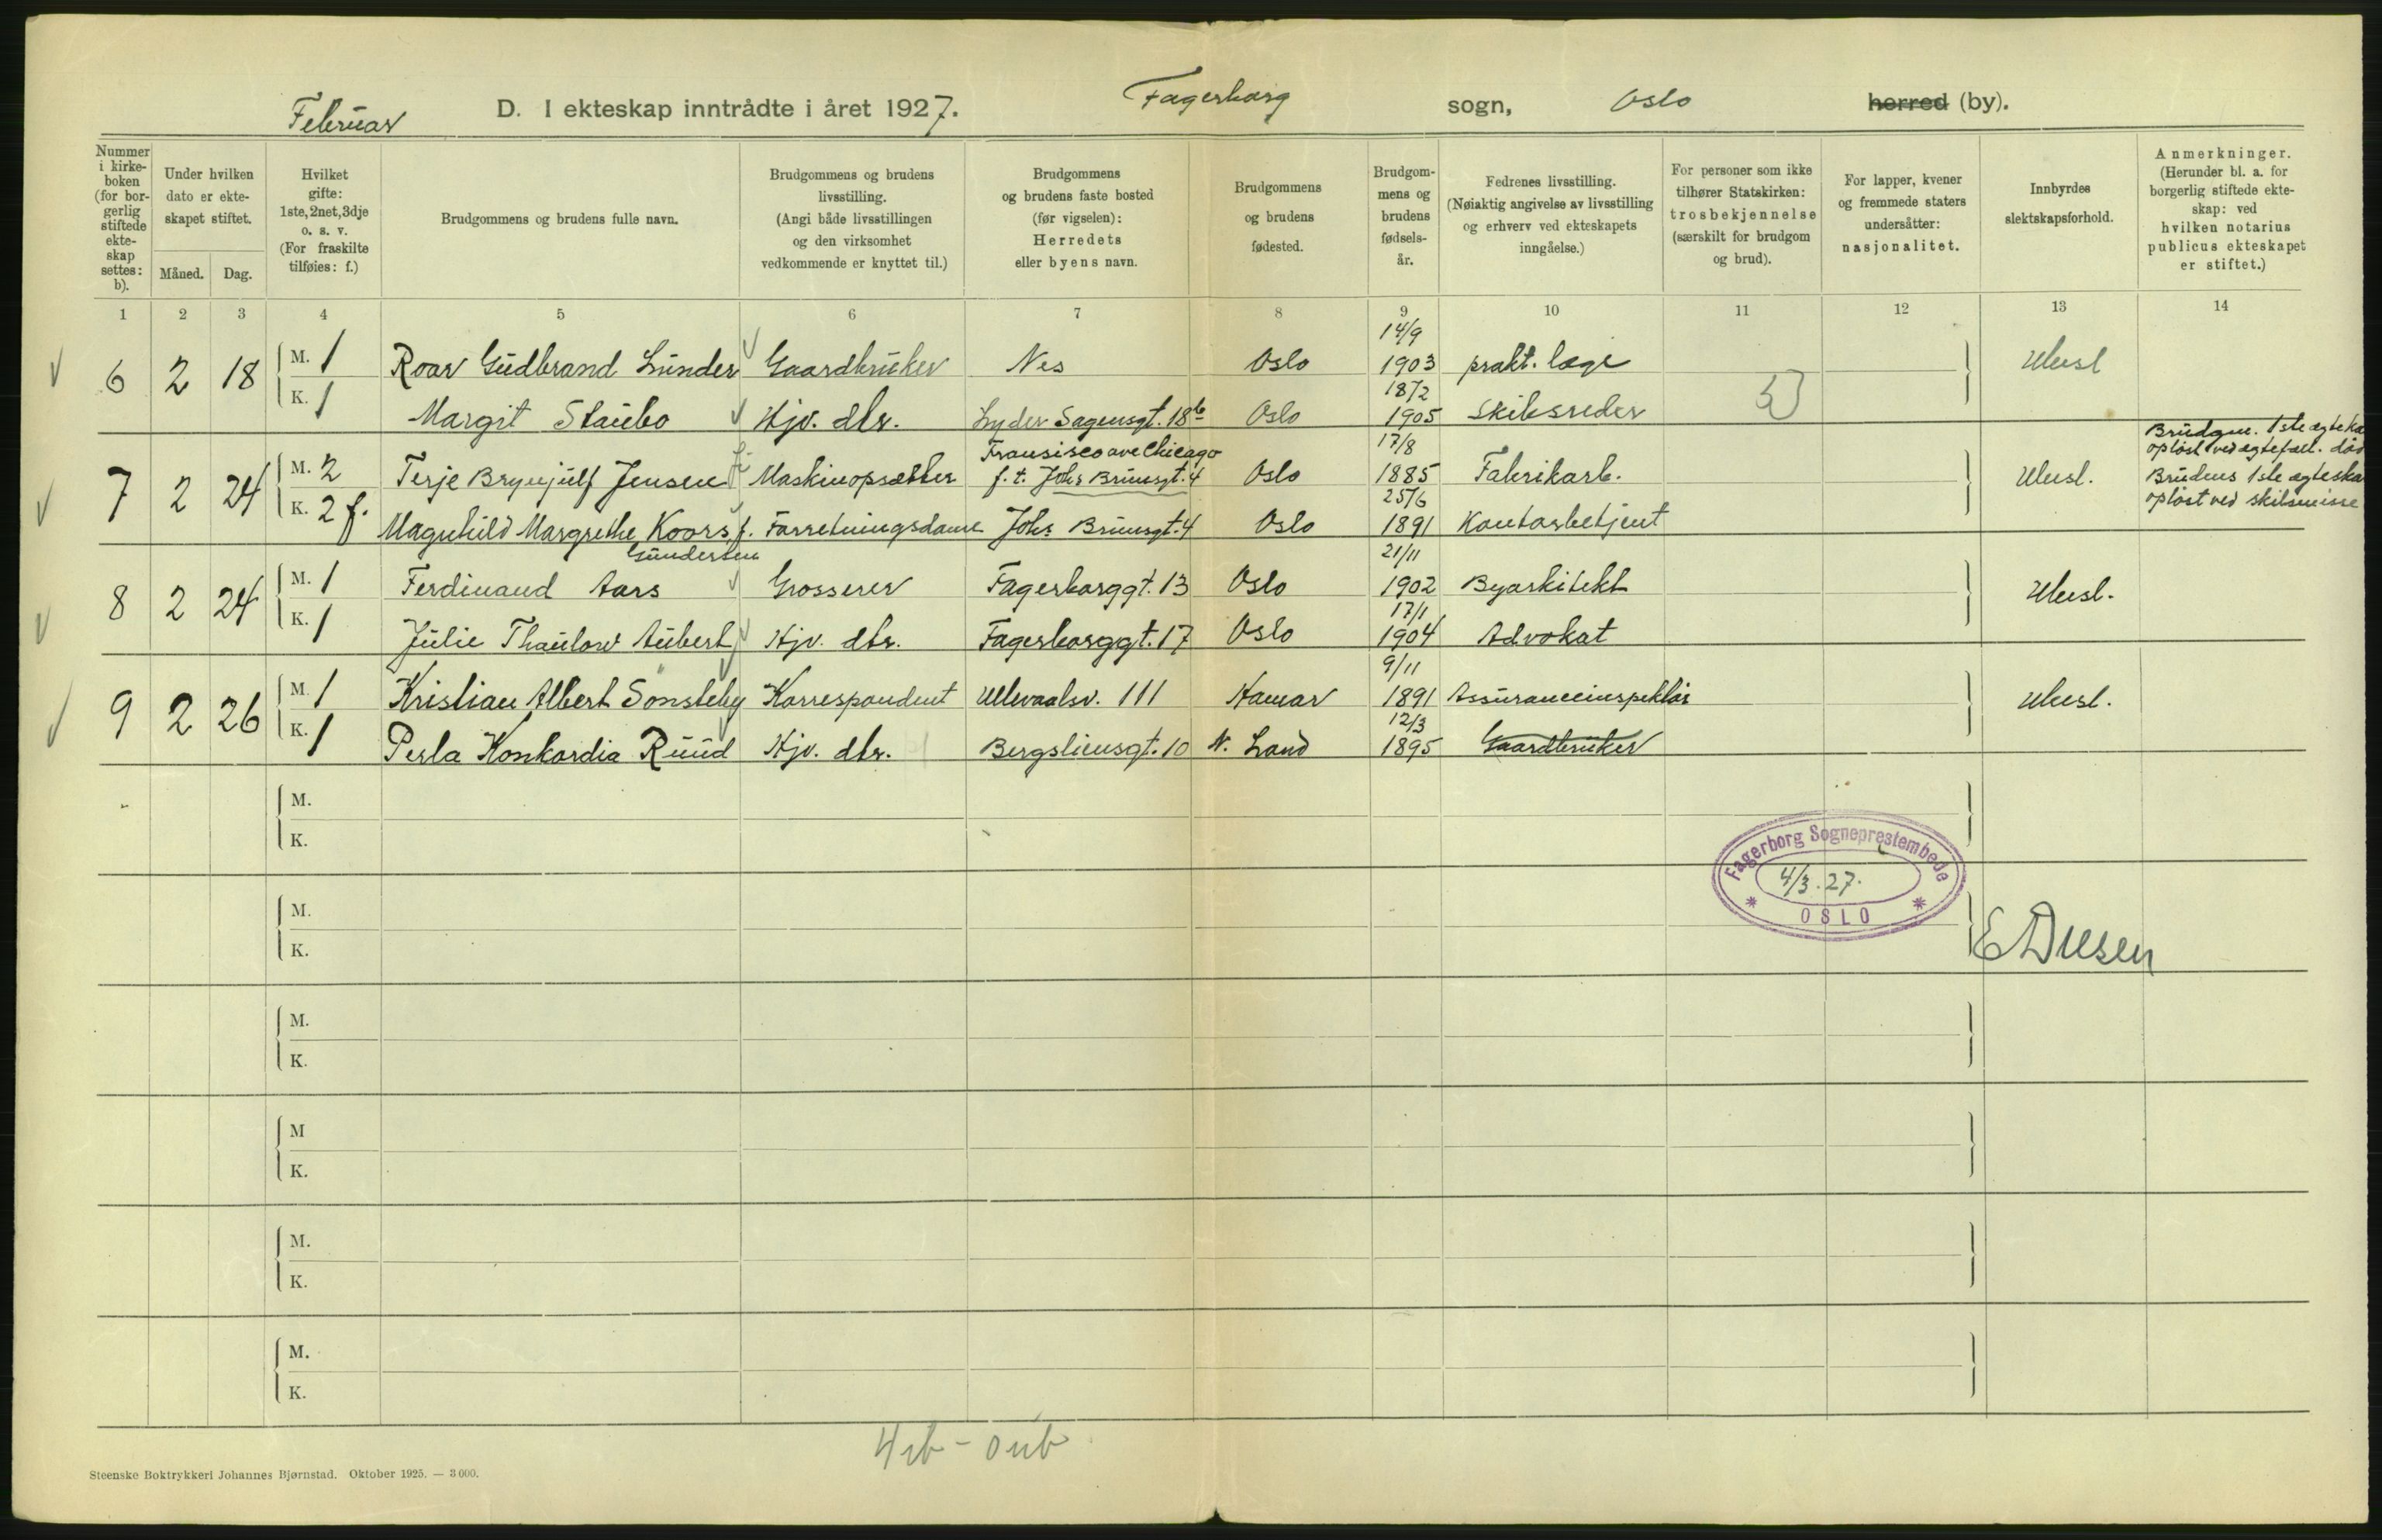 Februar D. I ekteskap inntrådte i året 1927. Fagerborg sogn, Oslo herred (by).
Nummer i kirke-boken (for bor-gerlig stiftede ekte-skap settes: b).
Under hvilken dato er ekte-skapet stiftet.
Måned. Dag.
Hvilket gifte: 1ste, 2net, 3dje o. s. v. (For fraskilte tilføies: f.)
Brudgommens og brudens fulle navn.
Brudgommens og brudens livsstilling. (Angi både livsstillingen og den virksomhet vedkommende er knyttet til.)
Brudgommens og brudens faste bosted (før vigselen): Herredets eller byens navn.
Brudgommens og brudens fødested.
Brudgom-mens og brudens fødsels-år.
Fedrenes livsstilling. (Nøiaktig angivelse av livsstilling og erhverv ved ekteskapets inngåelse.)
For personer som ikke tilhører Statskirken: trosbekjennelse (særskilt for brudgom og brud).
For lapper, kvener og fremmede staters undersåtter: nasjonalitet.
Innbyrdes slektskapsforhold.
Anmerkninger. (Herunder bl. a. for borgerlig stiftede ekte-skap: ved hvilken notarius publicus ekteskapet er stiftet.)
1 2 3 4 5 6 7 8 9 10 11 12 13 14
6 2 18 M. 1 Roar Gudbrand Lunder Gaardbruker Nes Oslo 14/9 1903 prakt. læge Ubesl
K. 1 Margit Staubo Hjv. dtr. Lyder Sagensgt. 18b Oslo 18/2 1905 Skibsreder
7 2 24 M. 2 Terje Brynjulf Jensen Maskinopsetter Fransisco ave Chicago f. t. Johs Brunsgt. 4 Oslo 17/8 1885 Fabrikarb. Ubesl. Brudgm. 1ste ægteska opløst ved ægtefæll. død
K. 2 f. Magnhild Margrethe Koors f. Gundersen Forretningsdame Johs Brunsgt. 4 Oslo 25/6 1891 Kontorbetjent Brudens 1ste ægteska opløst ved skilsmisse
8 2 24 M. 1 Ferdinand Aars Grosserer Fagerborggt. 13 Oslo 21/11 1902 Byarkitekt Ubesl.
K. 1 Julie Thaulow Aubert Hjv. dtr. Fagerborggt. 17 Oslo 17/1 1904 Advokat
9 2 26 M. 1 Kristian Albert Sønsteby Korrespondent Ullevaalsv. 111 Hamar 9/11 1891 Assuranceinspektør Ubesl.
K. 1 Perla Konkordia Ruud Hjv. dtr. Bergsliensgt. 10 N. Land 12/3 1895 Gaardbruker
M.
K.
Fagerborg Sogneprestembede
4/3. 27.
OSLO
M.
K.
M.
K.
M
K.
M.
K.
M.
K.
Steenske Boktrykkeri Johannes Bjørnstad. Oktober 1925. — 3 000.